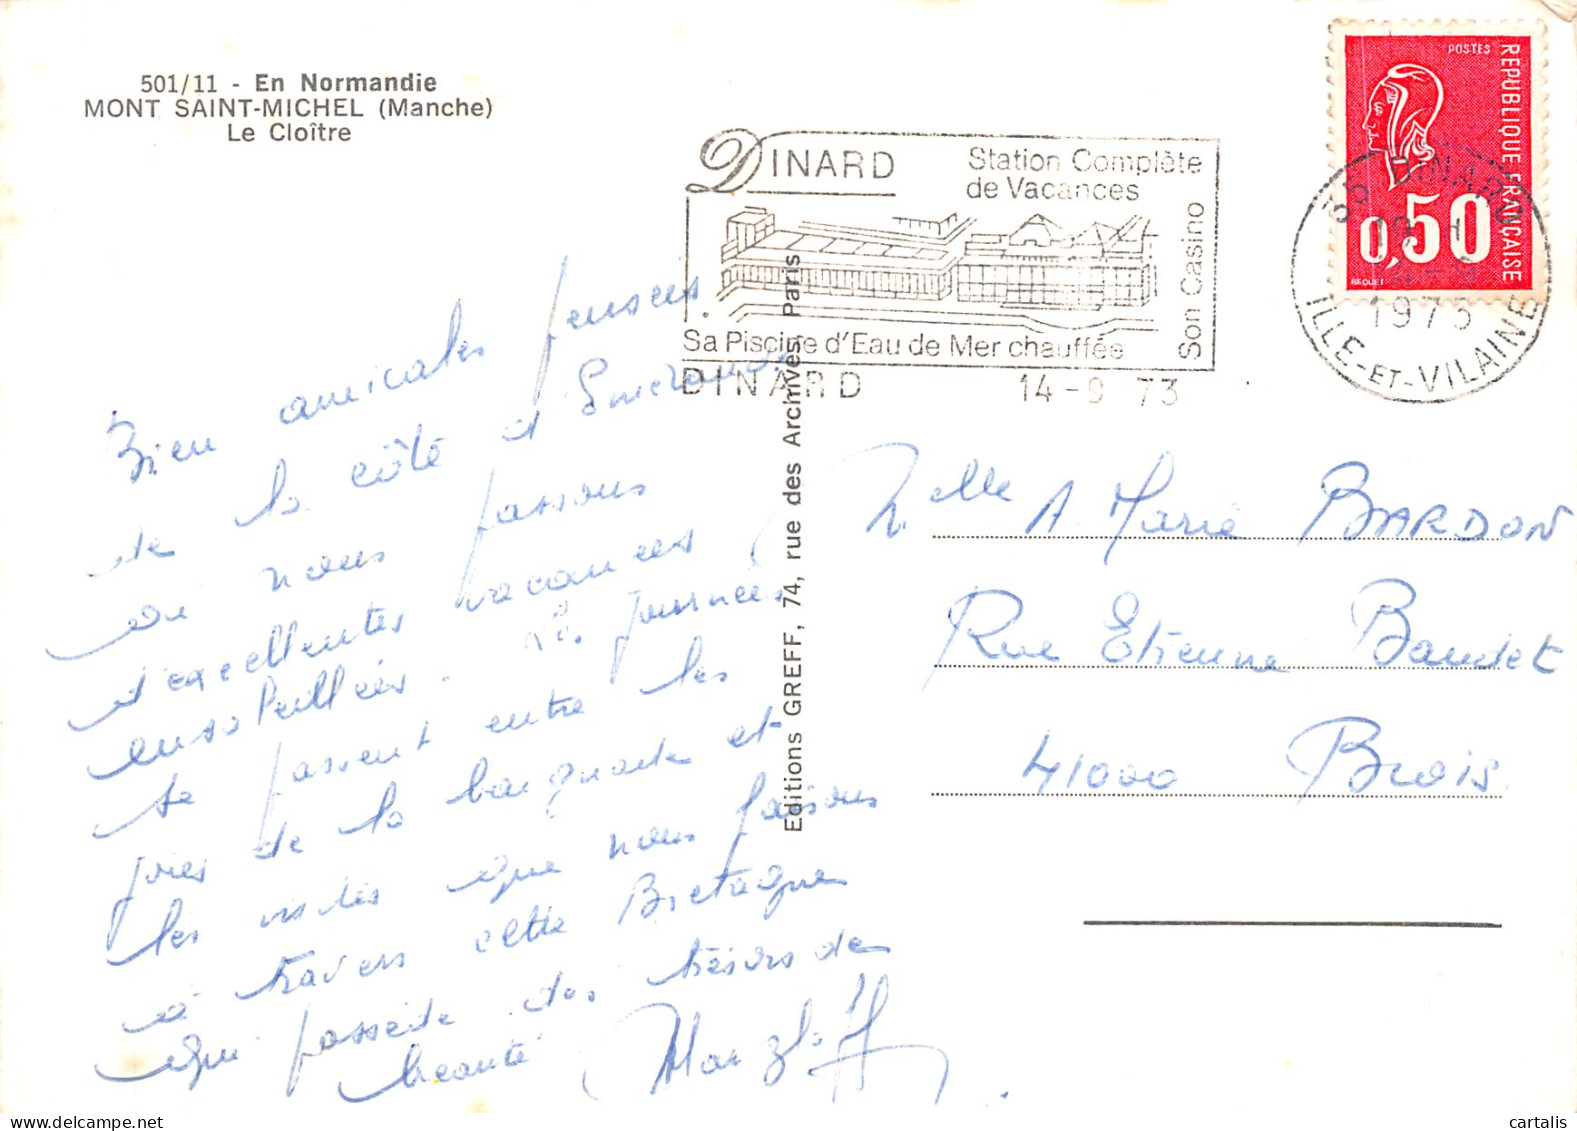 501/11 - En Normandie
MONT SAINT-MICHEL (Manche)
Le Cloître
DINARD
Station Complète
de Vacances
Son Casino
Sa Piscine d'Eau de Mer chauffée
DINARD 14-9 73
POSTES
REPUBLIQUE FRANÇAISE
0,50
BEQUET
35 DINARD
1973
ILLE-ET-VILAINE
Editions GREFF, 74, rue des Archives, Paris
Bien amicales pensées
de la côte d'Emeraude
où nous passons
d'excellentes vacances
ensoleillées. Les journées
se passent entre les
joies de la baignade et
les visites que nous faisons
à travers cette Bretagne
qui possède des trésors de
beauté
Melle A Marie BARDON
Rue Etienne Baudet
41000 Blois.
cartalis